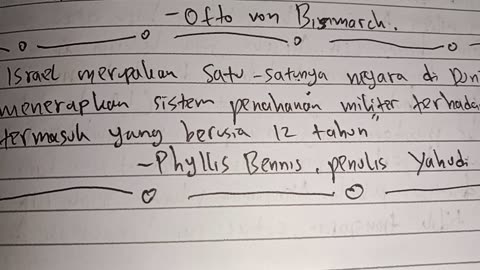 - Otto von Bismarch.
Israel merupakan satu-satunya negara di Dun
menerapkan sistem penahanan militer terhada
termasuk yang berusia 12 tahun"
- Phyllis Bennis, penulis Yahudi